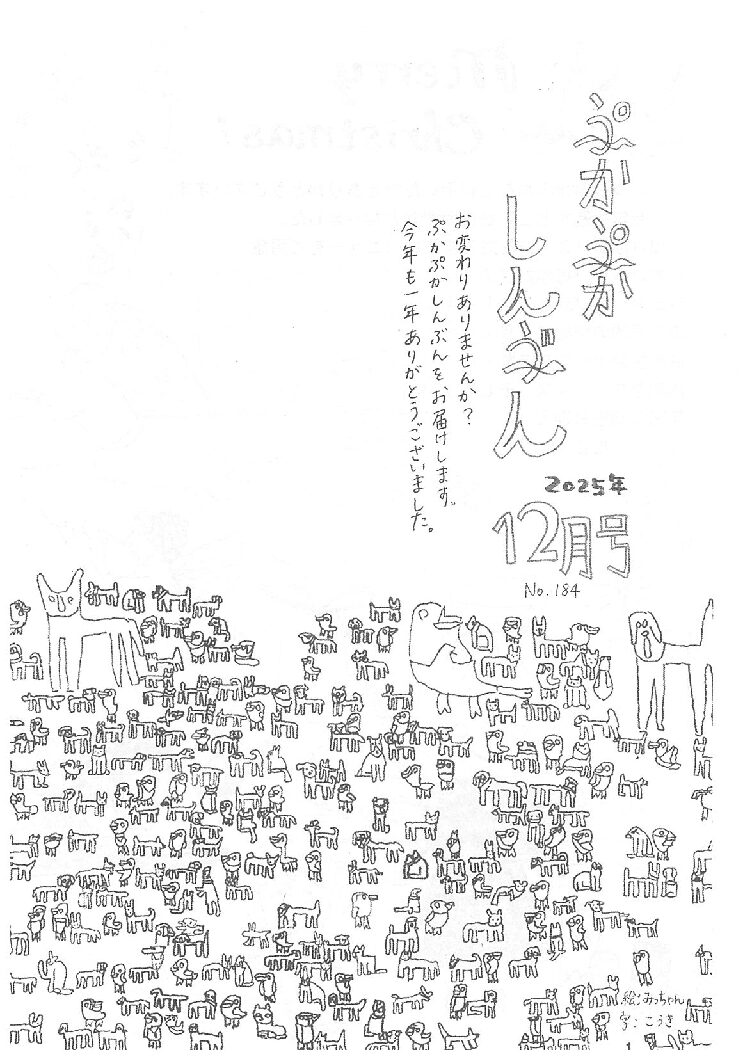 ぷかぷか
しんぶん
2025年
12月号
No.184
お変わりありませんか？
ぷかぷかしんぶんをお届けします。
今年も一年ありがとうございました。
絵：みっちゃん
字：こうき
Merry
Christmas!